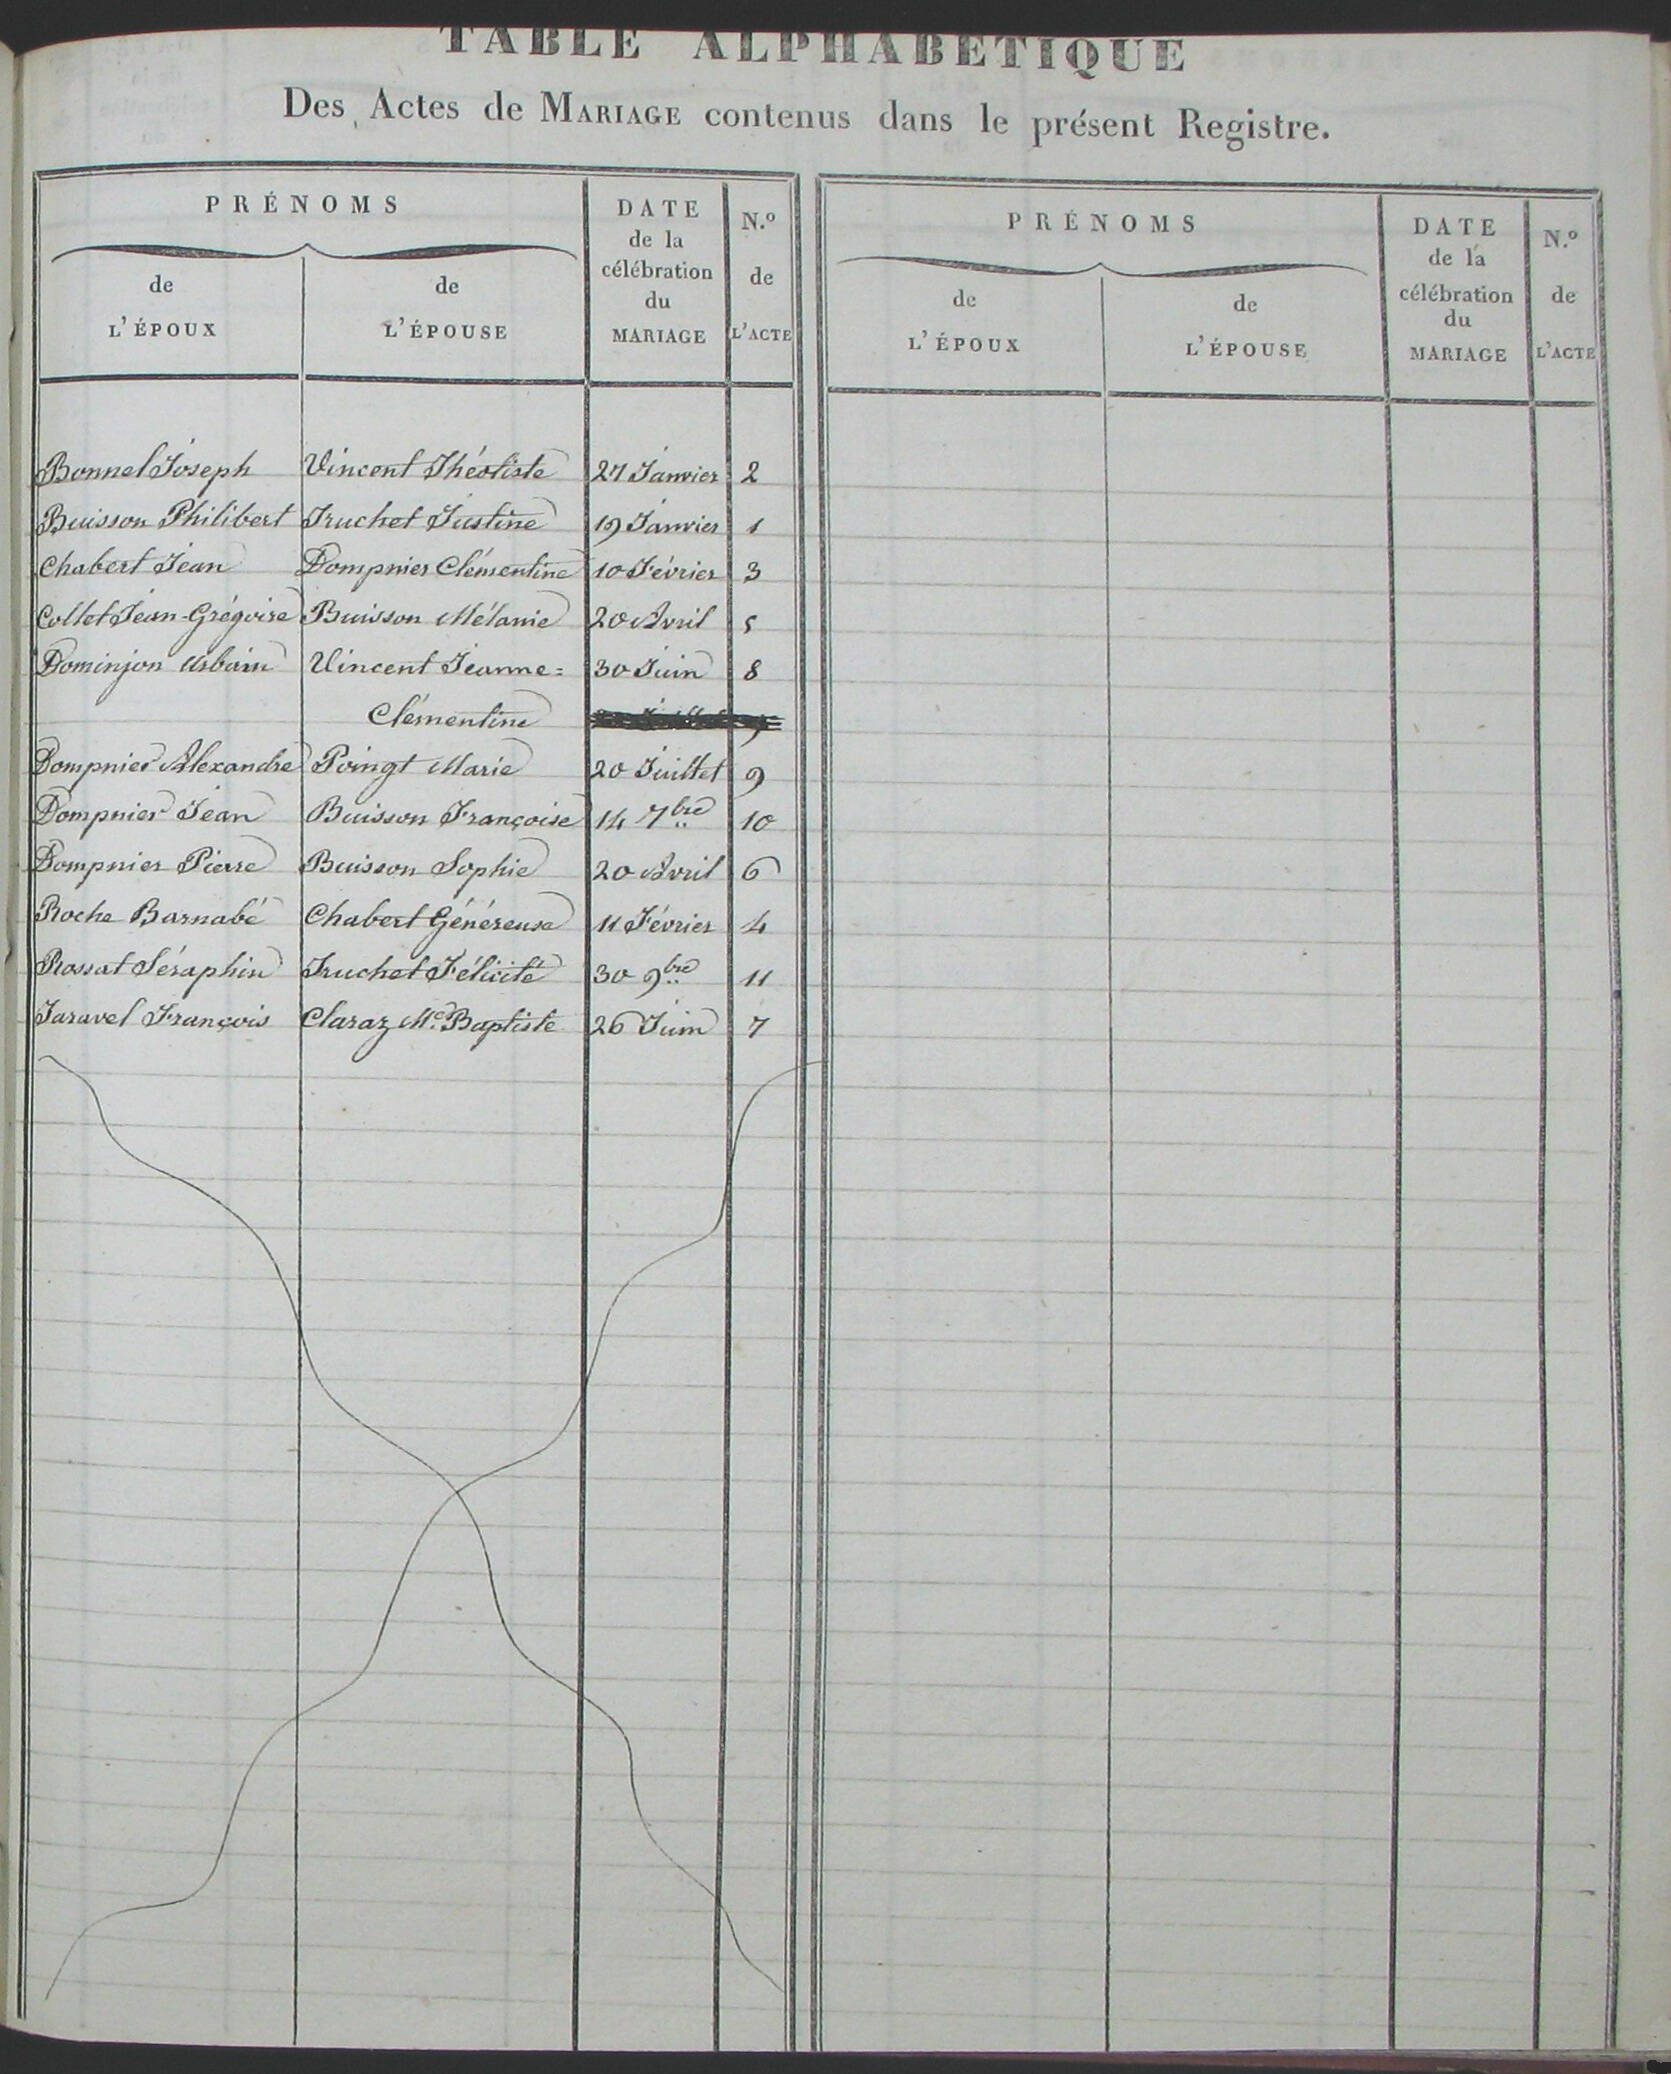 TABLE ALPHABÉTIQUE
Des Actes de MARIAGE contenus dans le présent Registre.
PRÉNOMS
de L'ÉPOUX
de L'ÉPOUSE
DATE de la célébration du MARIAGE
N.º de L'ACTE
PRÉNOMS
de L'ÉPOUX
de L'ÉPOUSE
DATE de la célébration du MARIAGE
N.º de L'ACTE
Bonnel Joseph Vincent Théotiste 27 Janvier 2
Buisson Philibert Truchet Justine 19 Janvier 1
Chabert Jean Dompnier Clémentine 10 Février 3
Collet Jean-Grégoire Buisson Mélanie 20 Avril 5
Dominjon Urbain Vincent Jeanne= 30 Juin 8
Clémentine
Dompnier Alexandre Poingt Marie 20 Juillet 9
Dompnier Jean Buisson Françoise 14 7bre 10
Dompnier Pierre Buisson Sophie 20 Avril 6
Roche Barnabé Chabert Généreuse 11 Février 4
Rossat Séraphin Truchet Félicité 30 9bre 11
Taravel François Claraz Me Baptiste 26 Juin 7